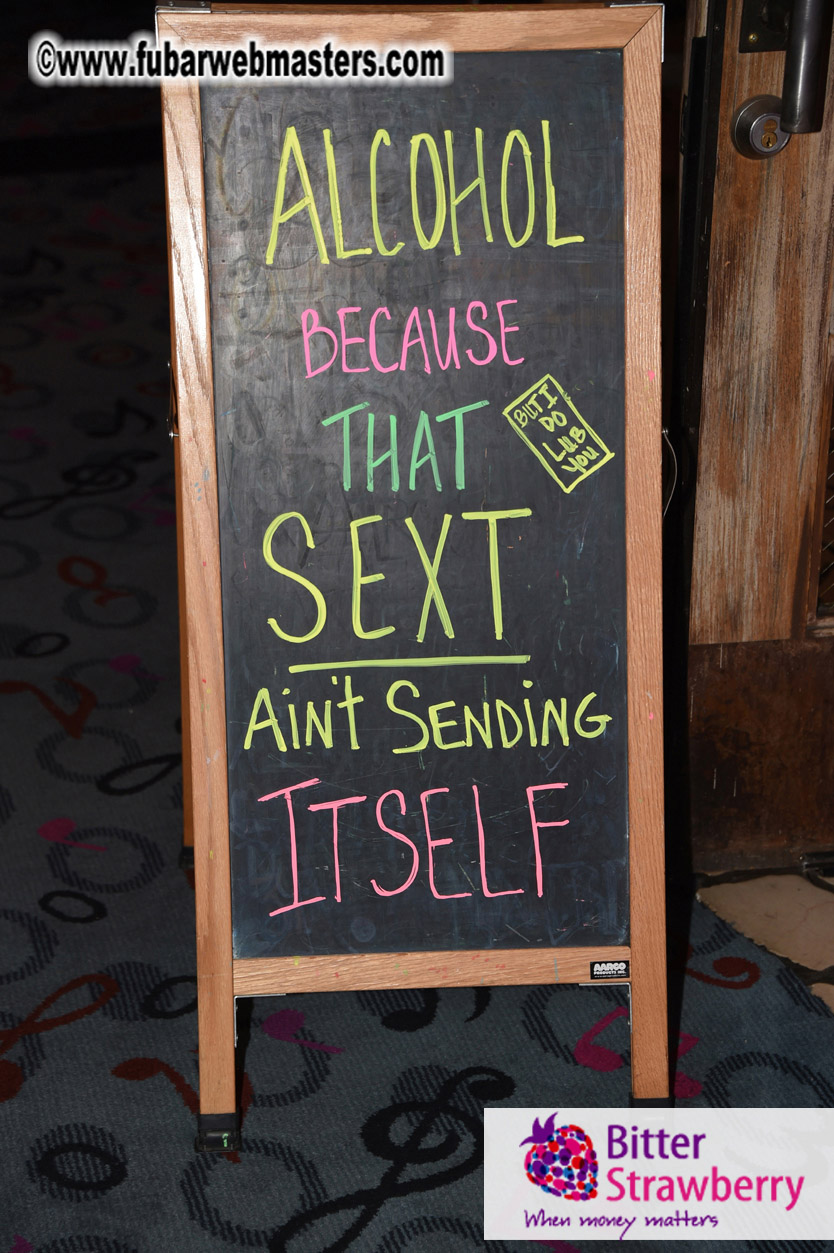 ©www.fubarwebmasters.com
ALCOHOL
BECAUSE
THAT
BUT I
DO
LUB
YOU
SEXT
AiN't SENDiNG
ITSELF
AARCO
PRODUCTS INC.
Bitter
Strawberry
When money matters